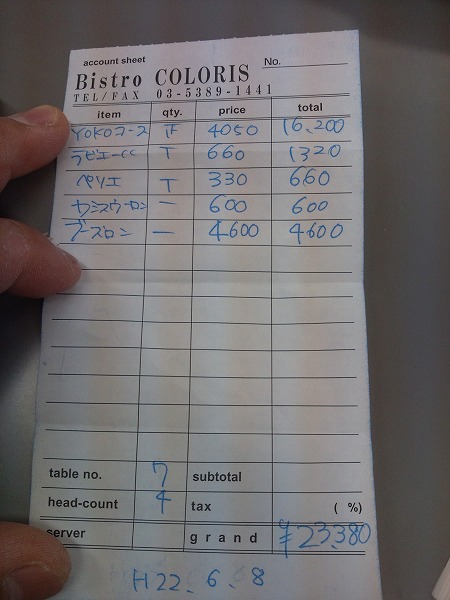 account sheet
Bistro COLORIS No.
TEL/FAX 03-5389-1441
item qty. price total
YOKOコース 4050 16,200
T 660 1320
ペリエ T 330 660
カシスウーロン 一 600 600
ブーズロン 一 4,600 4,600
table no. 7 subtotal
head-count 4 tax ( %)
server grand ¥23,380
H22.6.8